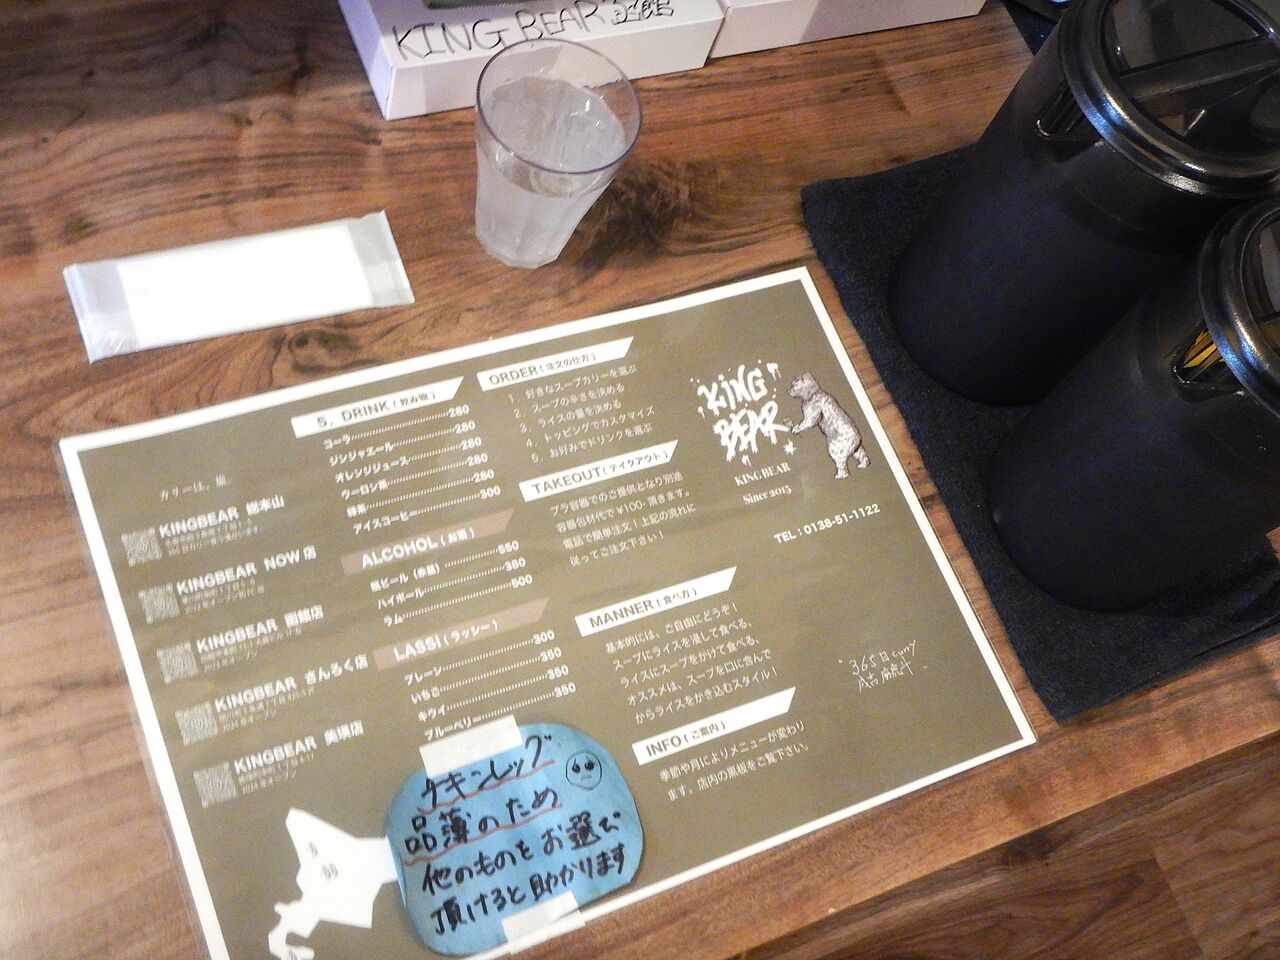 KING BEAR 函館
5. DRINK(飲み物)
コーラ 280
ジンジャエール 280
オレンジジュース 280
ウーロン茶 280
緑茶 280
アイスコーヒー 300
ALCOHOL(お酒)
瓶ビール(赤星) 550
ハイボール 380
ラム 500
LASSI(ラッシー)
プレーン 300
いちご 350
キウイ 350
ブルーベリー 350
ORDER(注文の仕方)
1. 好きなスープカリーを選ぶ
2. スープの辛さを決める
3. ライスの量を決める
4. トッピングでカスタマイズ
5. お好みでドリンクを選ぶ
TAKEOUT(テイクアウト)
プラ容器でのご提供となり別途
容器包材代で¥100-頂きます。
電話で簡単注文!上記の流れに
従ってご注文下さい!
MANNER(食べ方)
基本的には、ご自由にどうぞ!
スープにライスを浸して食べる、
ライスにスープをかけて食べる、
オススメは、スープを口に含んで
からライスをかき込むスタイル!
INFO(ご案内)
季節や月によりメニューが変わり
ます。店内の黒板をご覧下さい。
KING
BEAR
KING BEAR
Since 2015
TEL:0138-51-1122
365日curry
カリーは、
KINGBEAR 総本山
KINGBEAR NOW店
KINGBEAR 函館店
KINGBEAR さんろく店
KINGBEAR 美瑛店
チキンレッグ
品薄のため
他のものもお選び
頂けると助かります